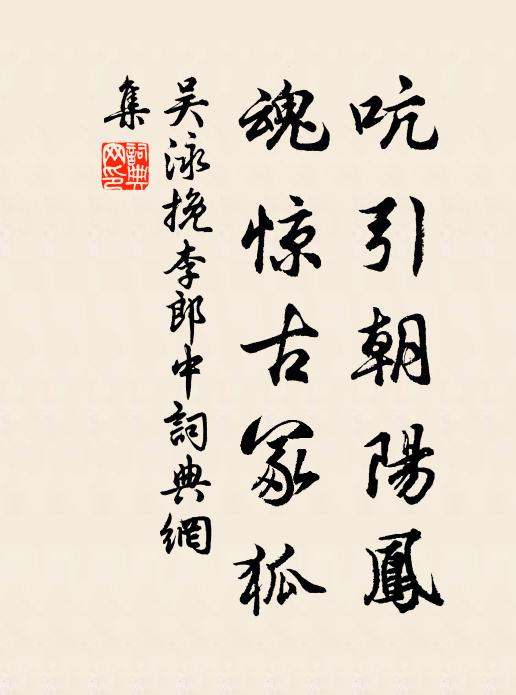 吭引朝陽鳳
魂惊古冢狐
吴泳挽李郎中詞典網
集
詞典
网印